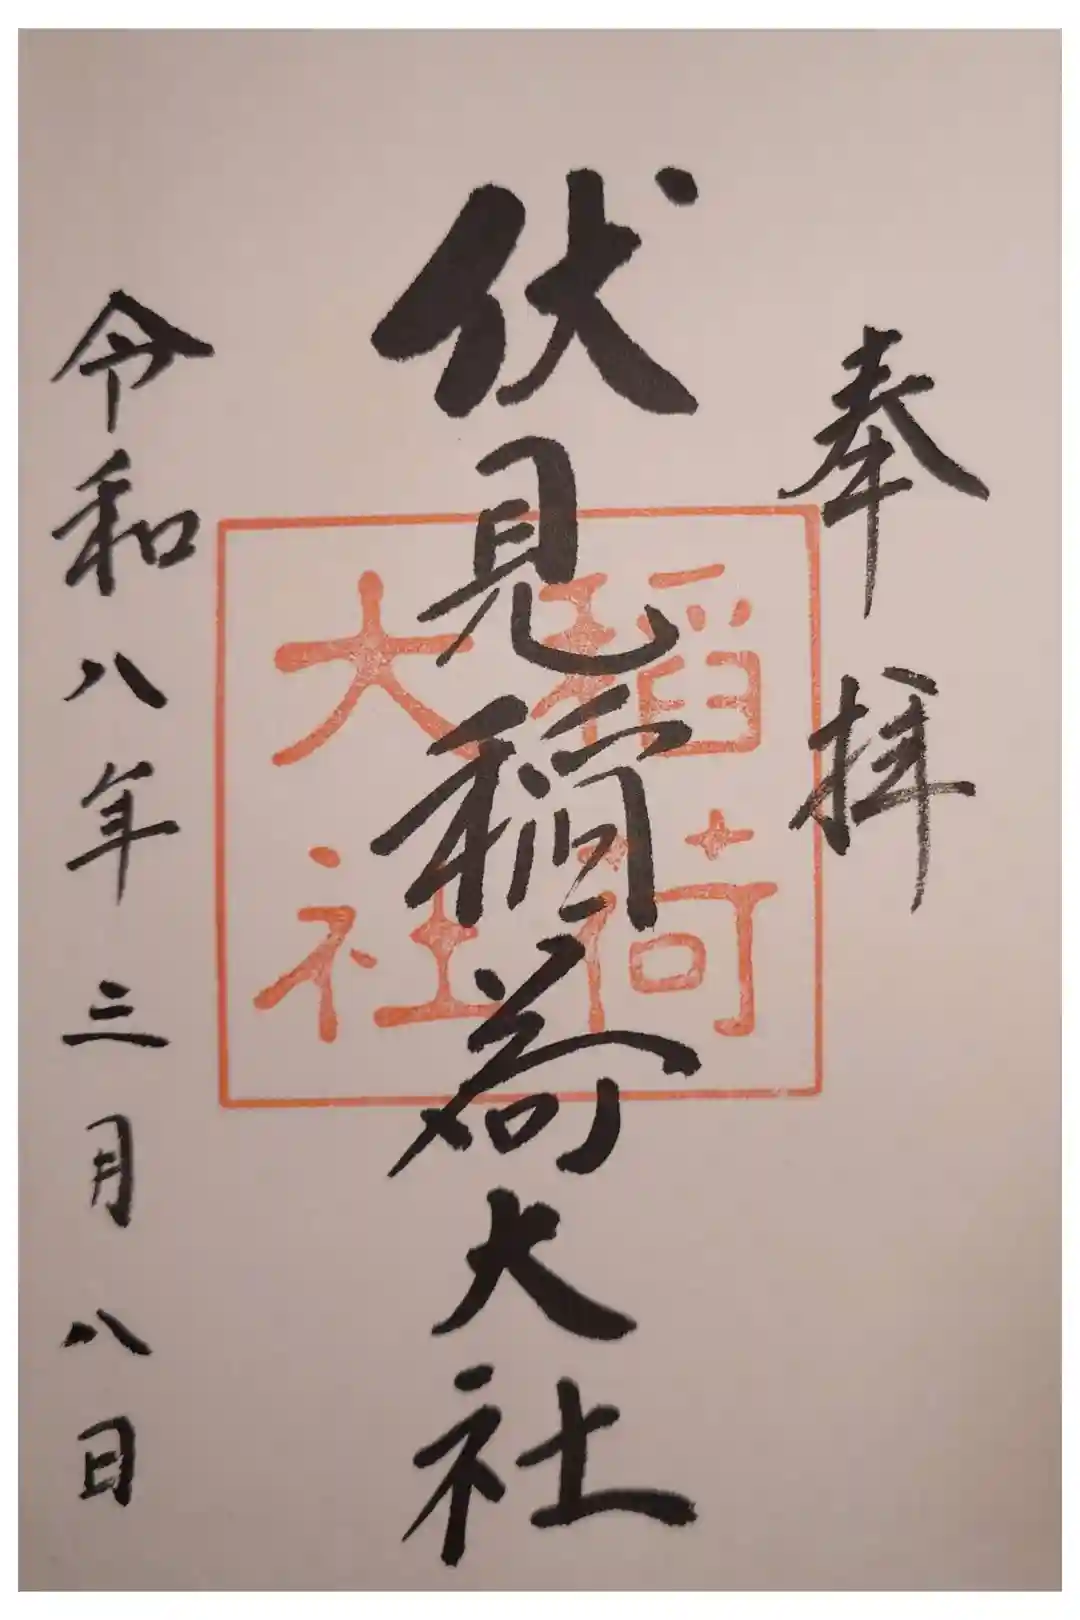 奉拝
伏見稲荷大社
稲荷
大社
令和八年三月八日